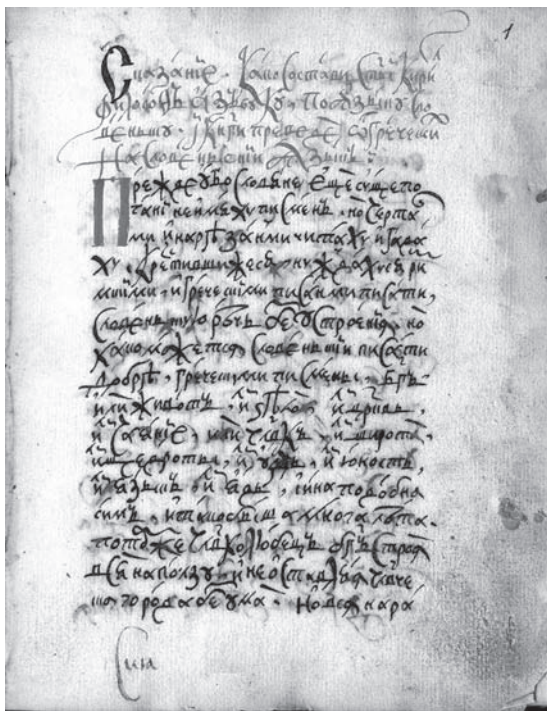 Сказаніе. Како состави ст҃ы Кири
филосоѳъ азъбуку. по ѧзыку сло
веньску. и книги преведе ѿ гречески
на словеньскїи ѧзыкъ.
Прежде ѹбо словѧне еще суще по
гани не имѧху писменъ. но черта
ми и нарѣзанми читаху и гада
ху. крестивши же сѧ, нуждахусѧ ри
мскими, и греческими писанми писати,
словеньскую рѣчь без ѹстроениѧ, но
какоможетсѧ словеньски писати
добрѣ, греческими писмены. бг҃ъ
или животъ, или ѕѣло, или црквь,
или чаание, или широта,
или щедроты, или юность,
или ѧзыкъ, или адъ, и ина подобна
симъ. и тако бѣша многа лѣта.
потом же чл҃колюбецъ бг҃ъ строѧ
всѧ на ползу и не оставлѧѧ члче
ска рода без ума. но всѧ к ра
1